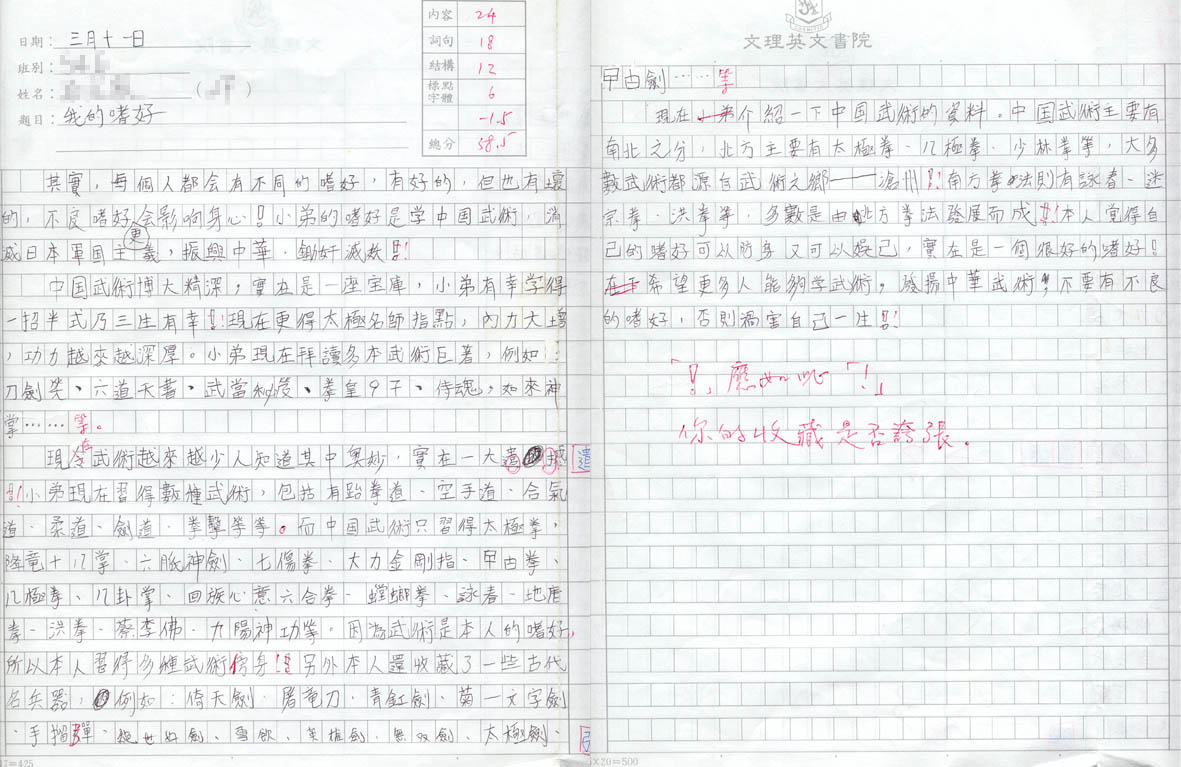 日期：三月十一日
班別：
姓名：
題目：我的嗜好
內容 24
詞句 18
結構 12
標點字體 6
-1.5
總分 58.5
其實，每個人都会有不同的嗜好，有好的，但也有壞
的，不良嗜好会影响身心！小弟的嗜好是学中国武術，消
滅日本軍国主義，振興中華，鋤奸滅敌！
中国武術博大精深，實在是一座宝庫，小弟有幸学得
一招半式乃三生有幸！現在更得太極名師指點，內力大增
，功力越來越深厚。小弟現在拜讀多本武術巨著，例如：
刀劍笑、六道天書、武當秘笈、拳皇97、侍魂，如來神
掌……等。
現今武術越來越少人知道其中奧妙，實在一大遺憾
！小弟現在習得數種武術，包括有跆拳道、空手道、合氣
道、柔道、劍道、拳擊等等。而中国武術只習得太極拳，
降竜十八掌、六脈神劍、七傷拳、大力金剛指、曱甴拳、
八極拳、八卦掌、回族心意六合拳、螳螂拳、詠春、地
拳、洪拳、蔡李佛、九陽神功等。因為武術是本人的嗜好，
所以本人習得多種武術傍身！另外本人還收藏了一些古代
名兵器，例如：倚天劍、屠竜刀、青釭劍、菊一文字劍
、手榴彈、雪飲、無双劍、太極劍、
遺
文理英文書院
曱甴劍……等
現在小弟介紹一下中国武術的資料。中国武術主要有
南北之分，北方主要有太極拳、八極拳、少林拳等，大多
數武術都源自武術之鄉——滄州！南方拳法則有詠春、迷
宗拳、洪拳等，多數是由北方拳法發展而成！本人覚得自
己的嗜好可以防身又可以娛己，實在是一個很好的嗜好！
希望更多人能夠学武術，發揚中華武術，不要有不良
的嗜好，否則禍害自己一生！
「！，應如此「！」
你的收藏是否誇張。
=425
5X20=500